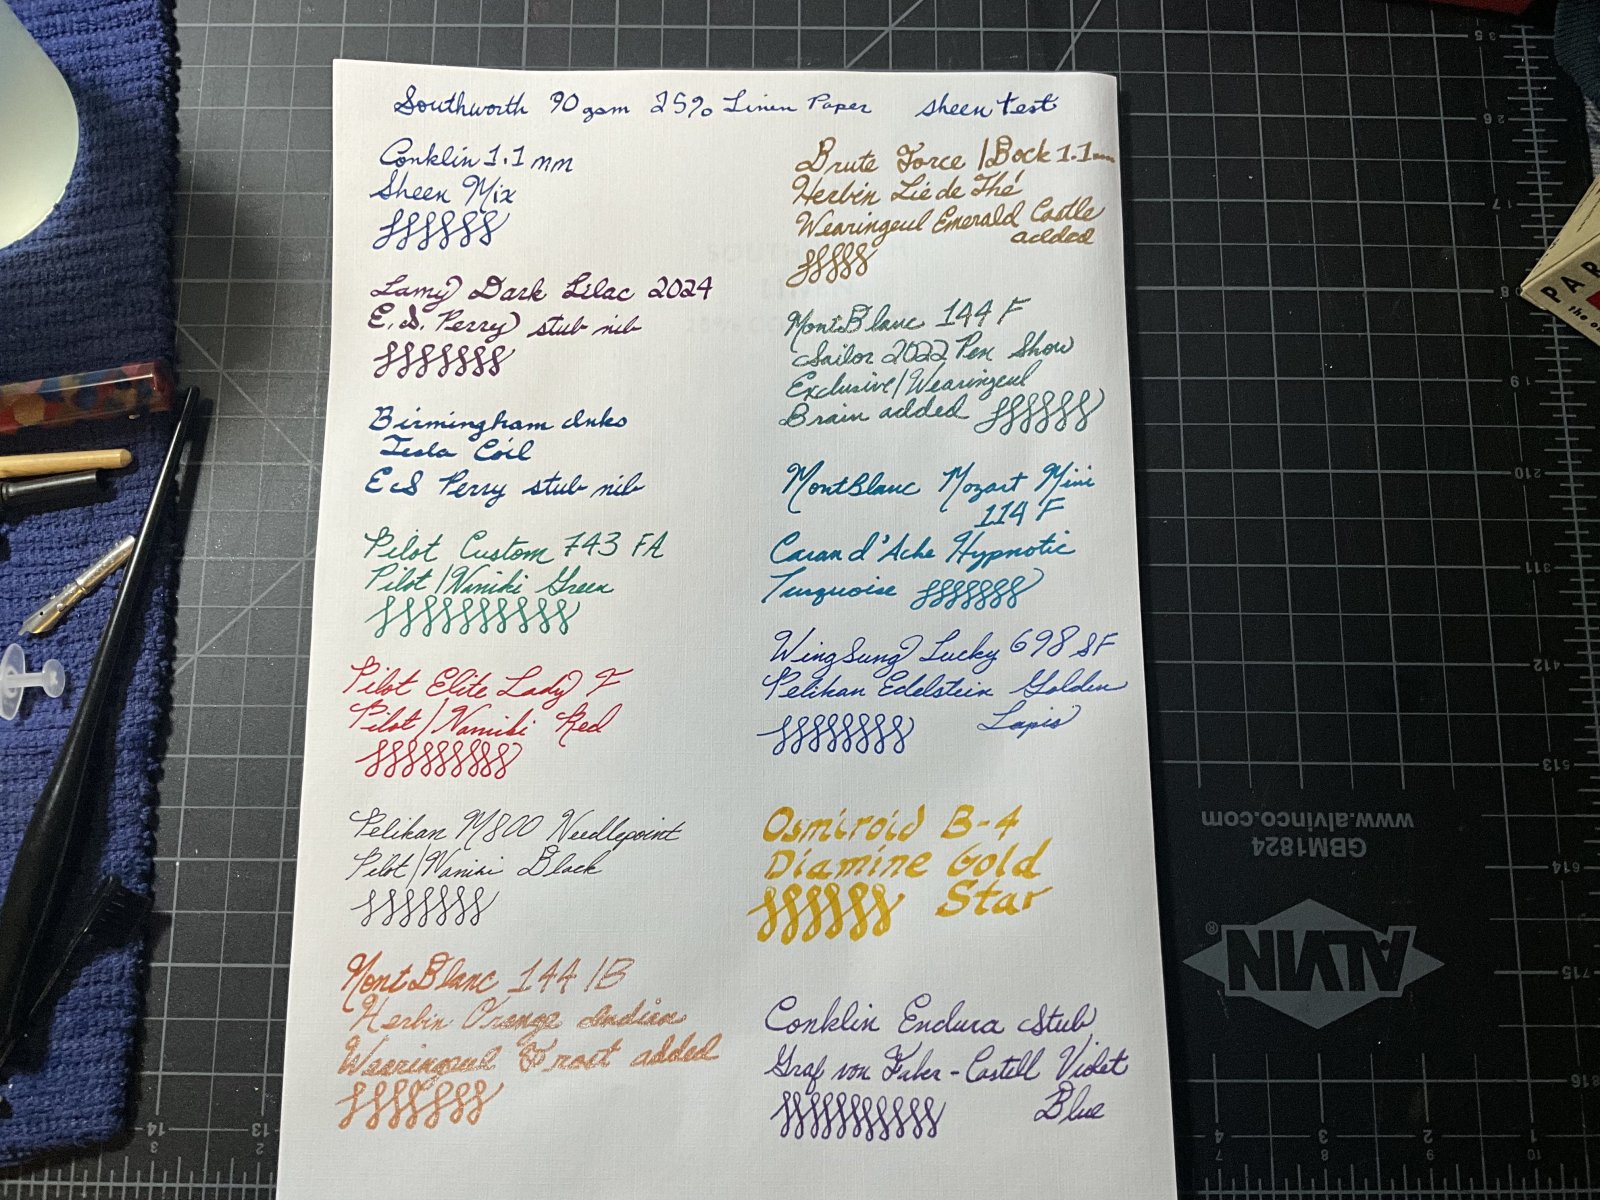 Southworth 90 gsm 25% Linen Paper sheen test
Conklin 1.1 mm
Sheen Mix
Lamy Dark Lilac 2024
E.S. Perry stub nib
Birmingham Inks
Tesla Coil
E S Perry stub nib
Pilot Custom 743 FA
Pilot/Namiki Green
Pilot Elite Lady F
Pilot/Namiki Red
Pelikan M800 Needlepoint
Pilot/Namiki Black
MontBlanc 144 /B
Herbin Orange Indian
Wearingeul Frost added
Brute Force /Bock 1.1mm
Herbin Lie de Thé
Wearingeul Emerald Castle
added
MontBlanc 144 F
Sailor 2022 Pen Show
Exclusive/Wearingeul
Brain added
MontBlanc Mozart Mini
114 F
Caran d'Ache Hypnotic
Turquoise
WingSung Lucky 698 SF
Pelikan Edelstein Golden
Lapis
Osmiroid B-4
Diamine Gold
Star
Conklin Endura Stub
Graf von Faber-Castell Violet
Blue
www.alvinco.com
GBM1824
ALVIN®
PAR
the o
14
13
12
4
3
2
1
7
8
9
10